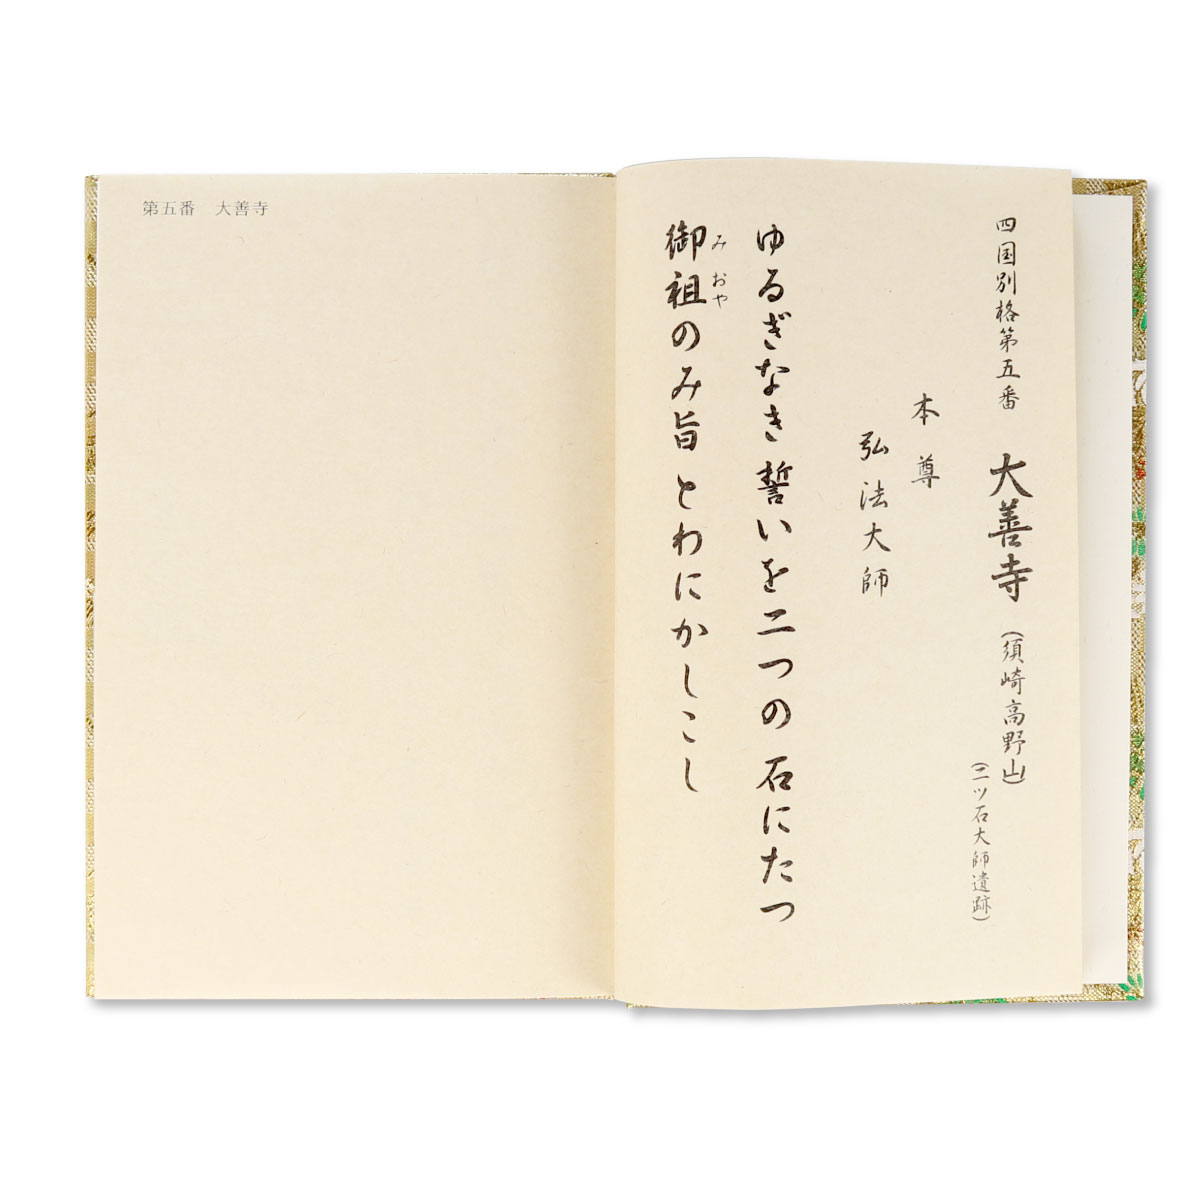 四国別格第五番　大善寺（須崎高野山）
（二ツ石大師遺跡）
本尊
弘法大師
ゆるぎなき誓いを二つの石にたつ
御祖のみ旨とわにかしこし
みおや
第五番　大善寺